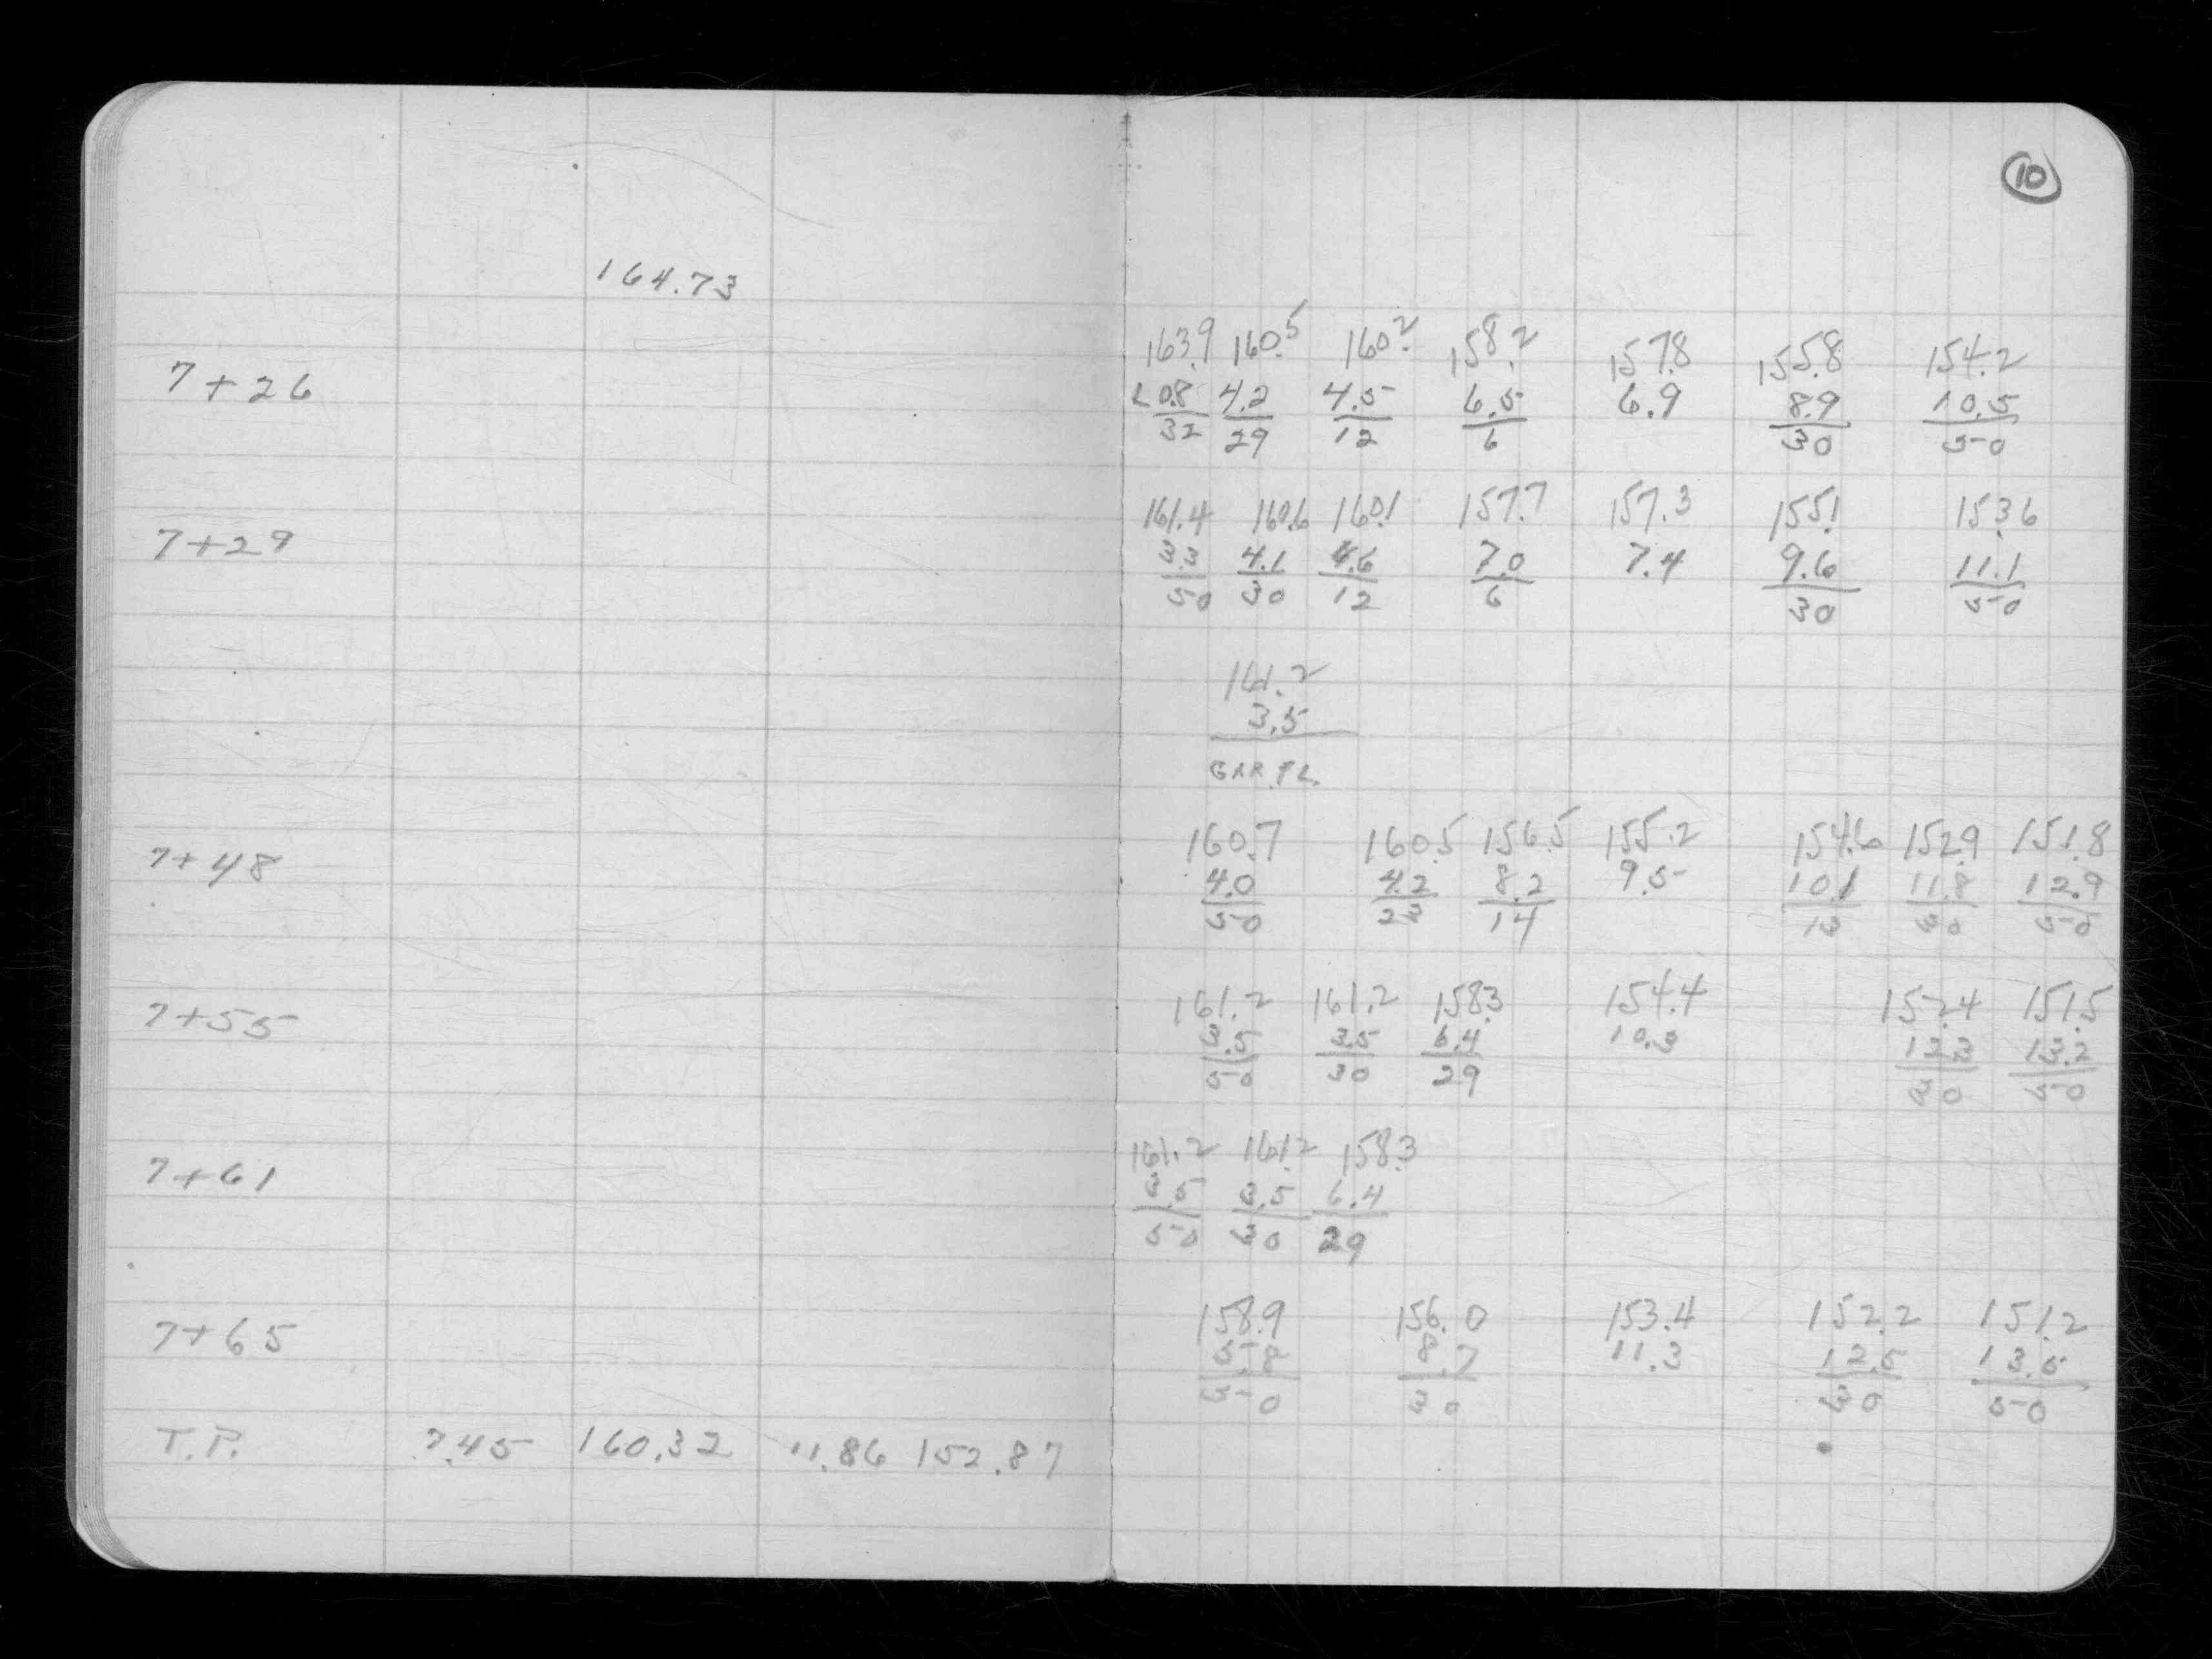 10
164.73
163.9 160.5 160.2 158.2 157.8 155.8 154.2
7+26 L 0.8 4.2 4.5 6.5 6.9 8.9 10.5
32 29 12 6 30 50
161.4 160.6 160.1 157.7 157.3 155.1 153.6
7+29 3.3 4.1 4.6 7.0 7.4 9.6 11.1
50 30 12 6 30 50
161.2
3.5
GAR. FL.
160.7 160.5 156.5 155.2 154.6 152.9 151.8
7+48 4.0 4.2 8.2 9.5 10.1 11.8 12.9
50 23 14 13 30 50
161.2 161.2 158.3 154.4 152.4 151.5
7+55 3.5 3.5 6.4 10.3 12.3 13.2
50 30 29 30 50
161.2 161.2 158.3
7+61 3.5 3.5 6.4
50 30 29
158.9 156.0 153.4 152.2 151.2
7+65 5.8 8.7 11.3 12.5 13.5
50 30 30 50
T.P. 7.45 160.32 11.86 152.87